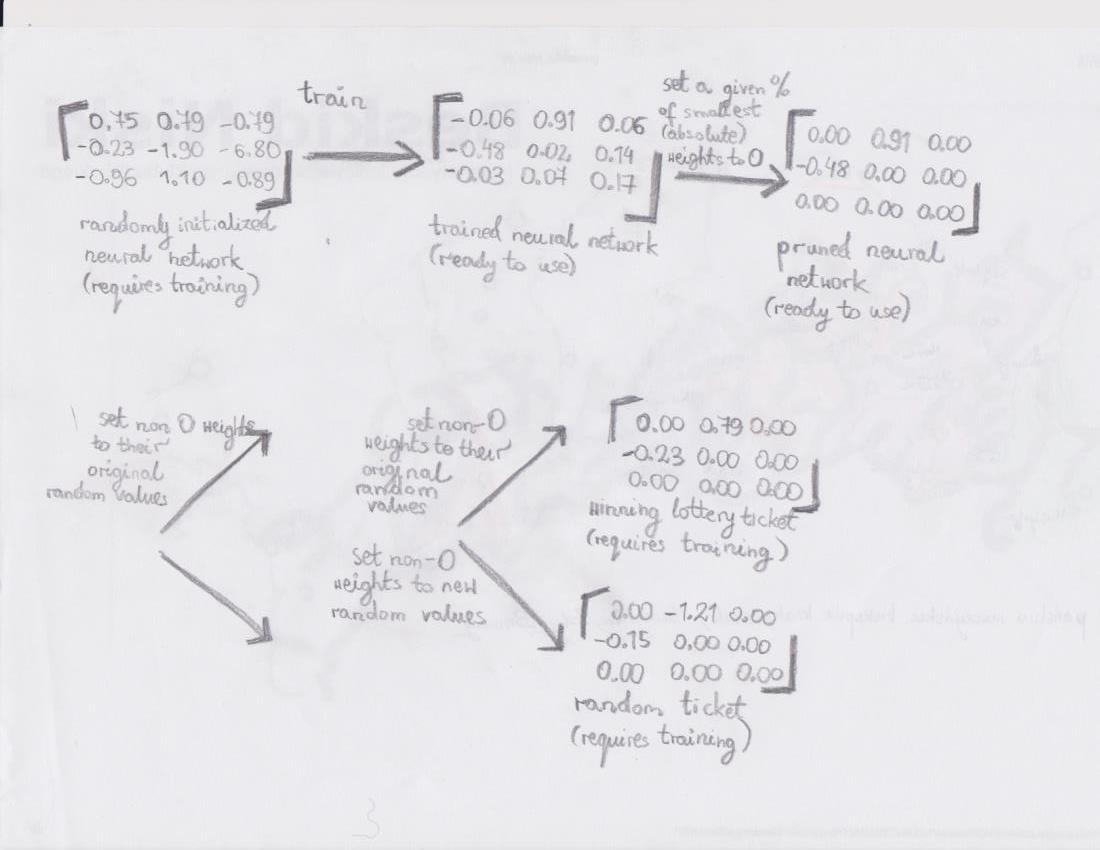 0.75 0.79 -0.79
-0.23 -1.90 -6.80
-0.96 1.10 -0.89
randomly initialized
neural network
(requires training)
train
-0.06 0.91 0.06
-0.48 0.02 0.14
-0.03 0.07 0.17
trained neural network
(ready to use)
set a given %
of smallest
(absolute)
weights to 0
0.00 0.91 0.00
-0.48 0.00 0.00
0.00 0.00 0.00
pruned neural
network
(ready to use)
set non 0 weights
to their
original
random values
set non-0
weights to their
original
random
values
set non-0
weights to new
random values
0.00 0.79 0.00
-0.23 0.00 0.00
0.00 0.00 0.00
winning lottery ticket
(requires training)
0.00 -1.21 0.00
-0.15 0.00 0.00
0.00 0.00 0.00
random ticket
(requires training)